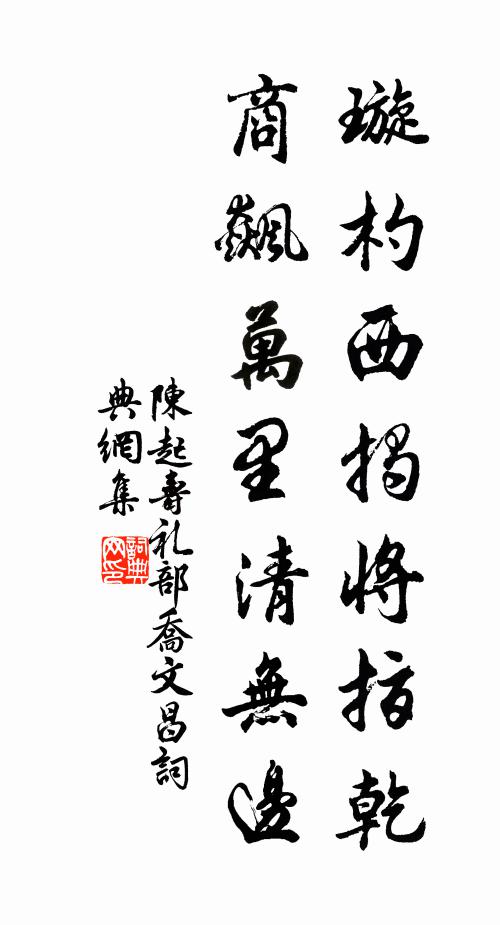 璇杓西揭將指乾
商飆萬里清無邊
陳起壽礼部喬文昌詞
典網集
詞典
网印